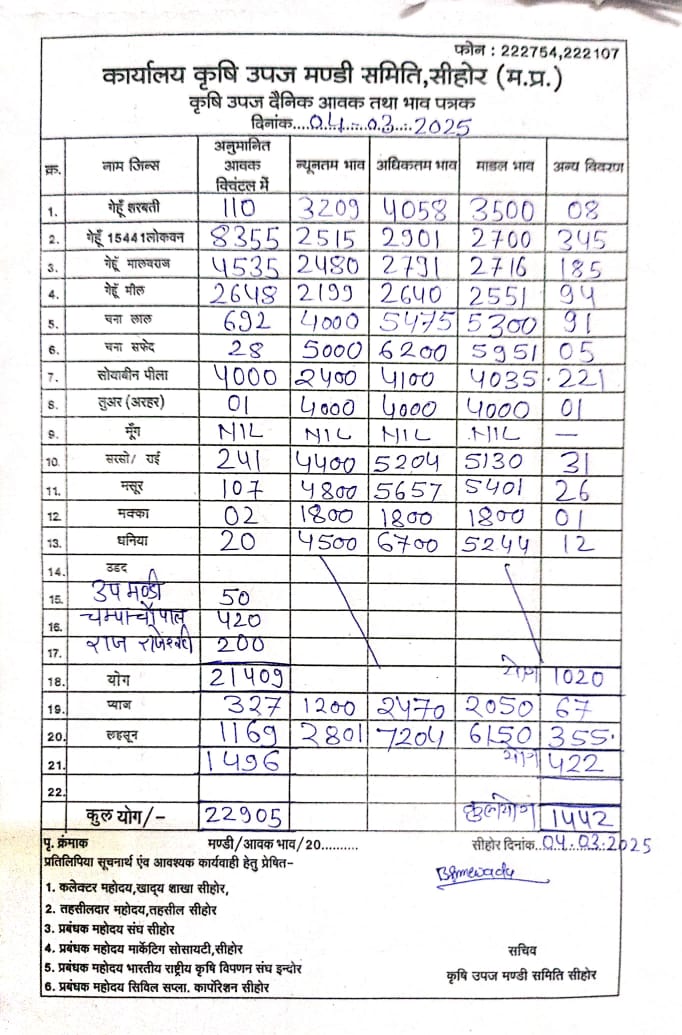 फोन : 222754,222107
कार्यालय कृषि उपज मण्डी समिति,सीहोर (म.प्र.)
कृषि उपज दैनिक आवक तथा भाव पत्रक
दिनांक....04-03-2025
क्र. नाम जिन्स अनुमानित आवक क्विंटल में न्यूनतम भाव अधिकतम भाव माडल भाव अन्य विवरण
1. गेहूँ शरबती 110 3209 4058 3500 08
2. गेहूँ 15441लोकवन 8355 2515 2901 2700 345
3. गेहूँ मालवराज 4535 2480 2791 2716 185
4. गेहूँ मील 2648 2199 2640 2551 94
5. चना लाल 692 4000 5475 5300 91
6. चना सफेद 28 5000 6200 5951 05
7. सोयाबीन पीला 4000 2400 4100 4035 221
8. तुअर (अरहर) 01 4000 4000 4000 01
9. मूँग NIL NIL NIL NIL —
10. सरसो/ राई 241 4400 5204 5130 31
11. मसूर 107 4800 5657 5401 26
12. मक्का 02 1800 1800 1800 01
13. धनिया 20 4500 6700 5244 12
14. उडद
15. उप मण्डी 50
16. चम्पा चौपाल 420
17. राज 200
18. योग 21409 योग 1020
19. प्याज 327 1200 2470 2050 67
20. लहसून 1169 2801 7204 6150 355
21. 1496 योग 422
22.
कुल योग/- 22905 कुलयोग 1442
पृ. क्रंमाक मण्डी/आवक भाव/20.......... सीहोर दिनांक..04.03.2025
प्रतिलिपिया सूचनार्थ एंव आवश्यक कार्यवाही हेतु प्रेषित-
1. कलेक्टर महोदय,खाद्य शाखा सीहोर,
2. तहसीलदार महोदय,तहसील सीहोर
3. प्रबंधक महोदय संघ सीहोर
4. प्रबंधक महोदय मार्केटिग सोसायटी,सीहोर
5. प्रबंधक महोदय भारतीय राष्ट्रीय कृषि विपणन संघ इन्दोर
6. प्रबंधक महोदय सिविल सप्ला. कार्पोरेशन सीहोर
सचिव
कृषि उपज मण्डी समिति सीहोर